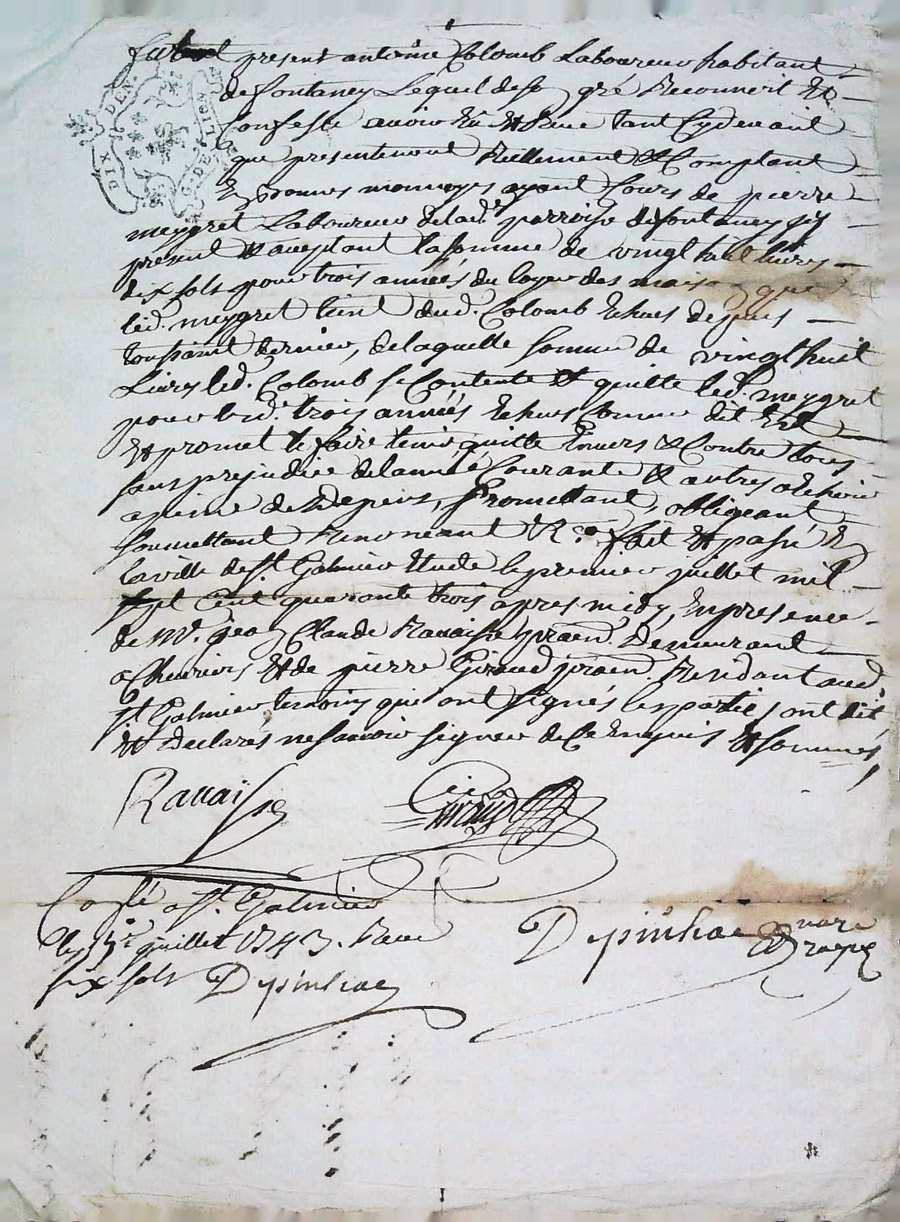 DIX DEN. G. DE LION
fut present antoine Colomb Laboureur habitant
de fontaney Lequel de so gré Reconnoit Et
Confesse avoir Eu Et Receu tant Cydevant
que presentement Reellement & Comptant
En bonnes monnoyes ayant Cours de pierre
meygret Laboureur de lad. parroisse de fontaney
present & aceptant la somme de vingt huit livres
dix sols pour trois années du loyer des
led. meygret tient dud. Colomb Echues depuis
toussaint dernier, de laquelle somme de vingt huit
Livres led. Colomb se Contente & quitte led. meygret
pour lesd. trois années Echues Comme dit Est
Et promet le faire tenir quitte Envers & Contre tous
sans prejudice de lannée Courante & autres a Echoir
a peine de tous depens, Promettant, obligeant
soumettant Renonceant &c.a fait & passé En
la ville de St. Galmier Etude le premier juillet mil
sept Cent quarante trois apres midy, En presence
de Mr. Jean Claude Ravaisse praen. Demeurant
a Et de pierre Giraud praen. Residant aud.
St. Galmier temoins qui ont signés les parties ont dit
& Declarés ne savoir signer de Ce Enquis & sommés,
Ravaisse Giraud
Conlé a St. Galmier
le juillet 1743. Receu
six sols Depinhac
Depinhac